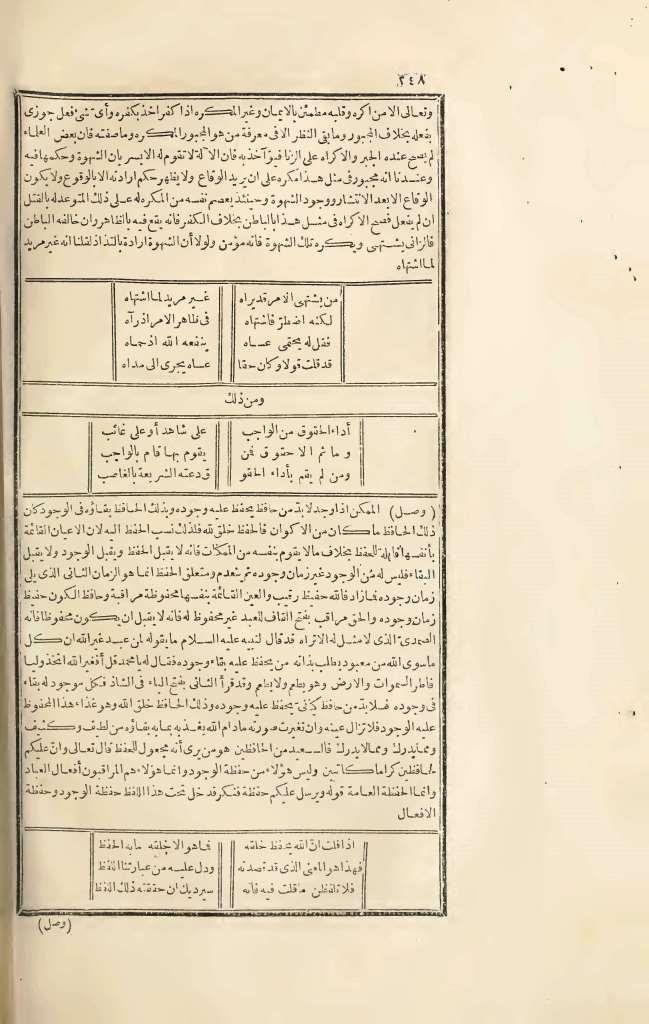 ٣٤٨
وتعالى الا من اكره وقلبه مطمئن بالايمان وغير المكره اذا كفر اخذ بكفره وأى شئ فعل جوزى
بفعله بخلاف المجبور وما بقى النظر الا فى معرفة من هو المجبور المكره وما صفته فان بعض العلماء
لم يصح عنده الجبر والاكراه على الزنا فيؤاخذ به فان الآلة لا تقوم له الا بسريان الشهوة وحكمها فيه
وعندنا انه مجبور فى مثل هذا مكره على ان يريد الوقاع ولا يظهر حكم ارادته الا بالوقوع ولا يكون
الوقاع الا بعد الانتشار ووجود الشهوة وحينئذ يعصم نفسه من المكره له على ذلك المتوعد له بالقتل
ان لم يفعل فصح الاكراه فى مثل هذا بالباطن بخلاف الكفر فانه يقع فيه بالظاهر وان خالفه الباطن
فالزانى يشتهى ويكره تلك الشهوة فانه مؤمن ولولا أن الشهوة ارادة بالتذاذ لقلنا انه غير مريد
لما اشتهاه
من يشتهى الامر قد يراه غير مريد لما اشتهاه
لكنه اضطرّ فاشتهاه فى ظاهر الامر اذ رآه
فقل له يحتمى عساه ينفعه الله اذ حماه
قد قلت قولا وكان حقا عساه يجرى الى مداه
ومن ذلك
أداء الحقوق من الواجب على شاهد أو على غائب
وما ثم الا حقوق فمن يقوم بها قام بالواجب
ومن لم يقم بأداء الحقو ق دعته الشريعة بالغاصب
(وصل) الممكن اذا وجد لا بدّ من حافظ يحفظ عليه وجوده وبذلك الحافظ بقاؤه فى الوجود كان
ذلك الحافظ ما كان من الاكوان فالحفظ خلق لله فلذلك نسب الحفظ اليه لان الاعيان القائمة
بأنفسها قابلة للحفظ بخلاف ما لا يقوم بنفسه من الممكنات فانه لا يقبل الحفظ ويقبل الوجود ولا يقبل
البقاء فليس له من الوجود غير زمان وجوده ثم ينعدم ومتعلق الحفظ انما هو الزمان الثانى الذى يلى
زمان وجوده فما زاد فالله حفيظ رقيب والعين القائمة بنفسها محفوظة مراقبة وحافظ الكون حفيظ
زمان وجوده والحق مراقب بفتح القاف للعبد غير محفوظ له فانه لا يقبل ان يكون محفوظا فانه
الصمدىّ الذى لا مثل له الا تراه قد قال لنبيه عليه السلام ما يقوله لمن عبد غير الله ان كل
ماسوى الله من معبود يطلب بذاته من يحفظ عليه بقاء وجوده فقال له يا محمد قل أفغير الله اتخذ وليا
فاطر السموات والارض وهو يطعم ولا يطعم وقد قرأ الثانى بفتح الياء فى الشاذ فكل موجود له بقاء
فى وجوده فلا بدّ من حافظ كيانىّ يحفظ عليه وجوده وذلك الحافظ خلق الله وهو غذاء هذا المحفوظ
عليه الوجود فلا تزال عينه وان تغيرت صورته مادام الله يغذيه بما به بقاؤه من لطيف وكثيف
ومما يدرك ومما لا يدرك فالسعيد من الحافظين هو من يرى أنه مجعول للحفظ قال تعالى وانّ عليكم
لحافظين كراما كاتبين وليس هؤلاء من حفظة الوجود وانما هؤلاء هم المراقبون أفعال العباد
وانما الحفظة العامة قوله ويرسل عليكم حفظة فنكر فدخل تحت هذا اللفظ حفظة الوجود وحفظة
الافعال
اذا قلت انّ الله يحفظ خلقه فما هو الا خلقه ما به الحفظ
فهذا هو المعنى الذى قد قصدته ودل عليه من عبارتنا اللفظ
فلا تلفظن ما قلت فيه فانه سيرديك ان حققته ذلك اللفظ
(وصل)